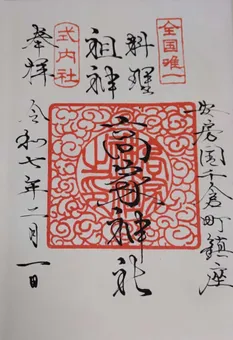 安房国千倉町鎮座
全国唯一
料理
祖神
高家神社
式内社
奉拝
令和七年二月一日